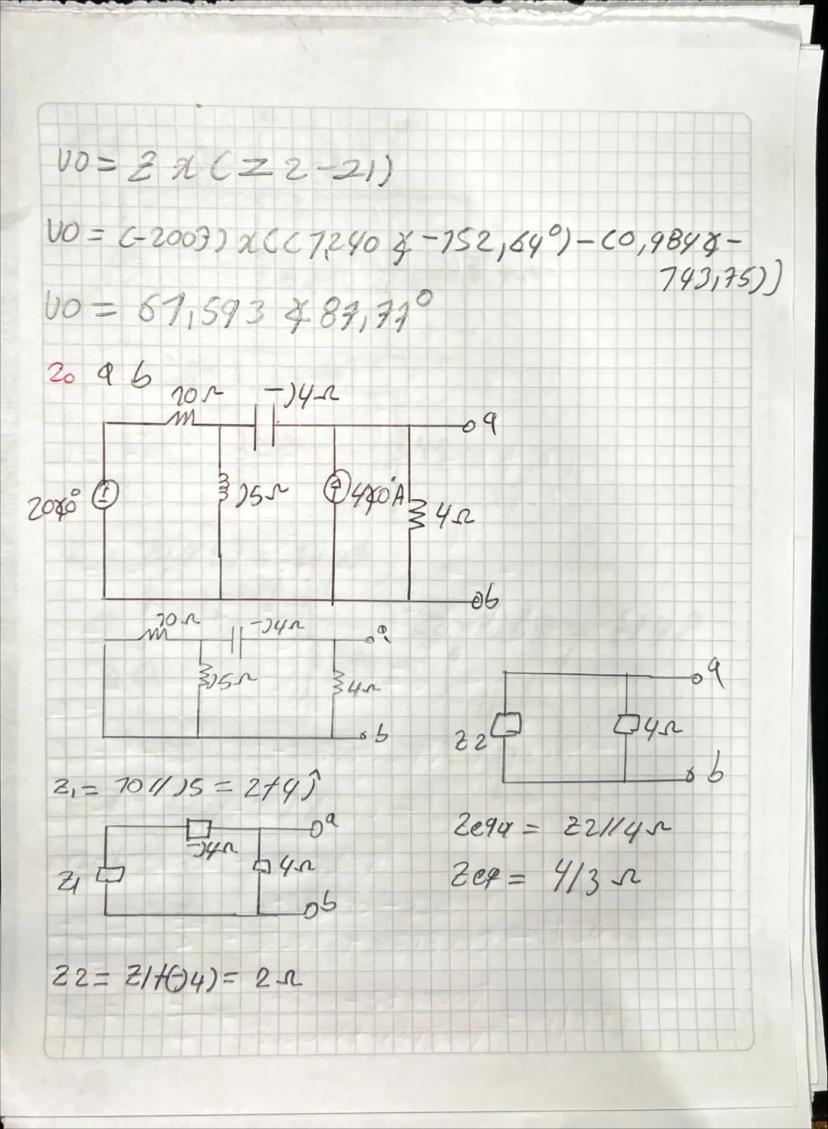 VO = Z x (Z2 - Z1)
VO = (-200j) x ((1,240 ∡ -152,64°) - (0,984 ∡ -
143,75))
VO = 61,593 ∡ 87,77°
2o a b
10Ω -j4Ω
a
20∡0° j5Ω 4∡0°A 4Ω
b
10Ω -j4Ω a
j5Ω 4Ω
b
a
Z2 4Ω
b
Z1 = 10 // j5 = 2+4j
a
-j4Ω
Z1 4Ω
b
Zeqα = Z2//4Ω
Zeq = 4/3 Ω
Z2 = Z1+(-j4) = 2Ω